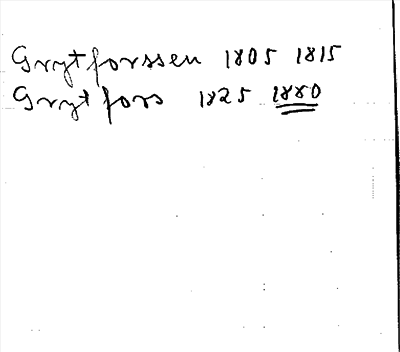 Grytforssen 1805 1815
Grytfors 1825 1880